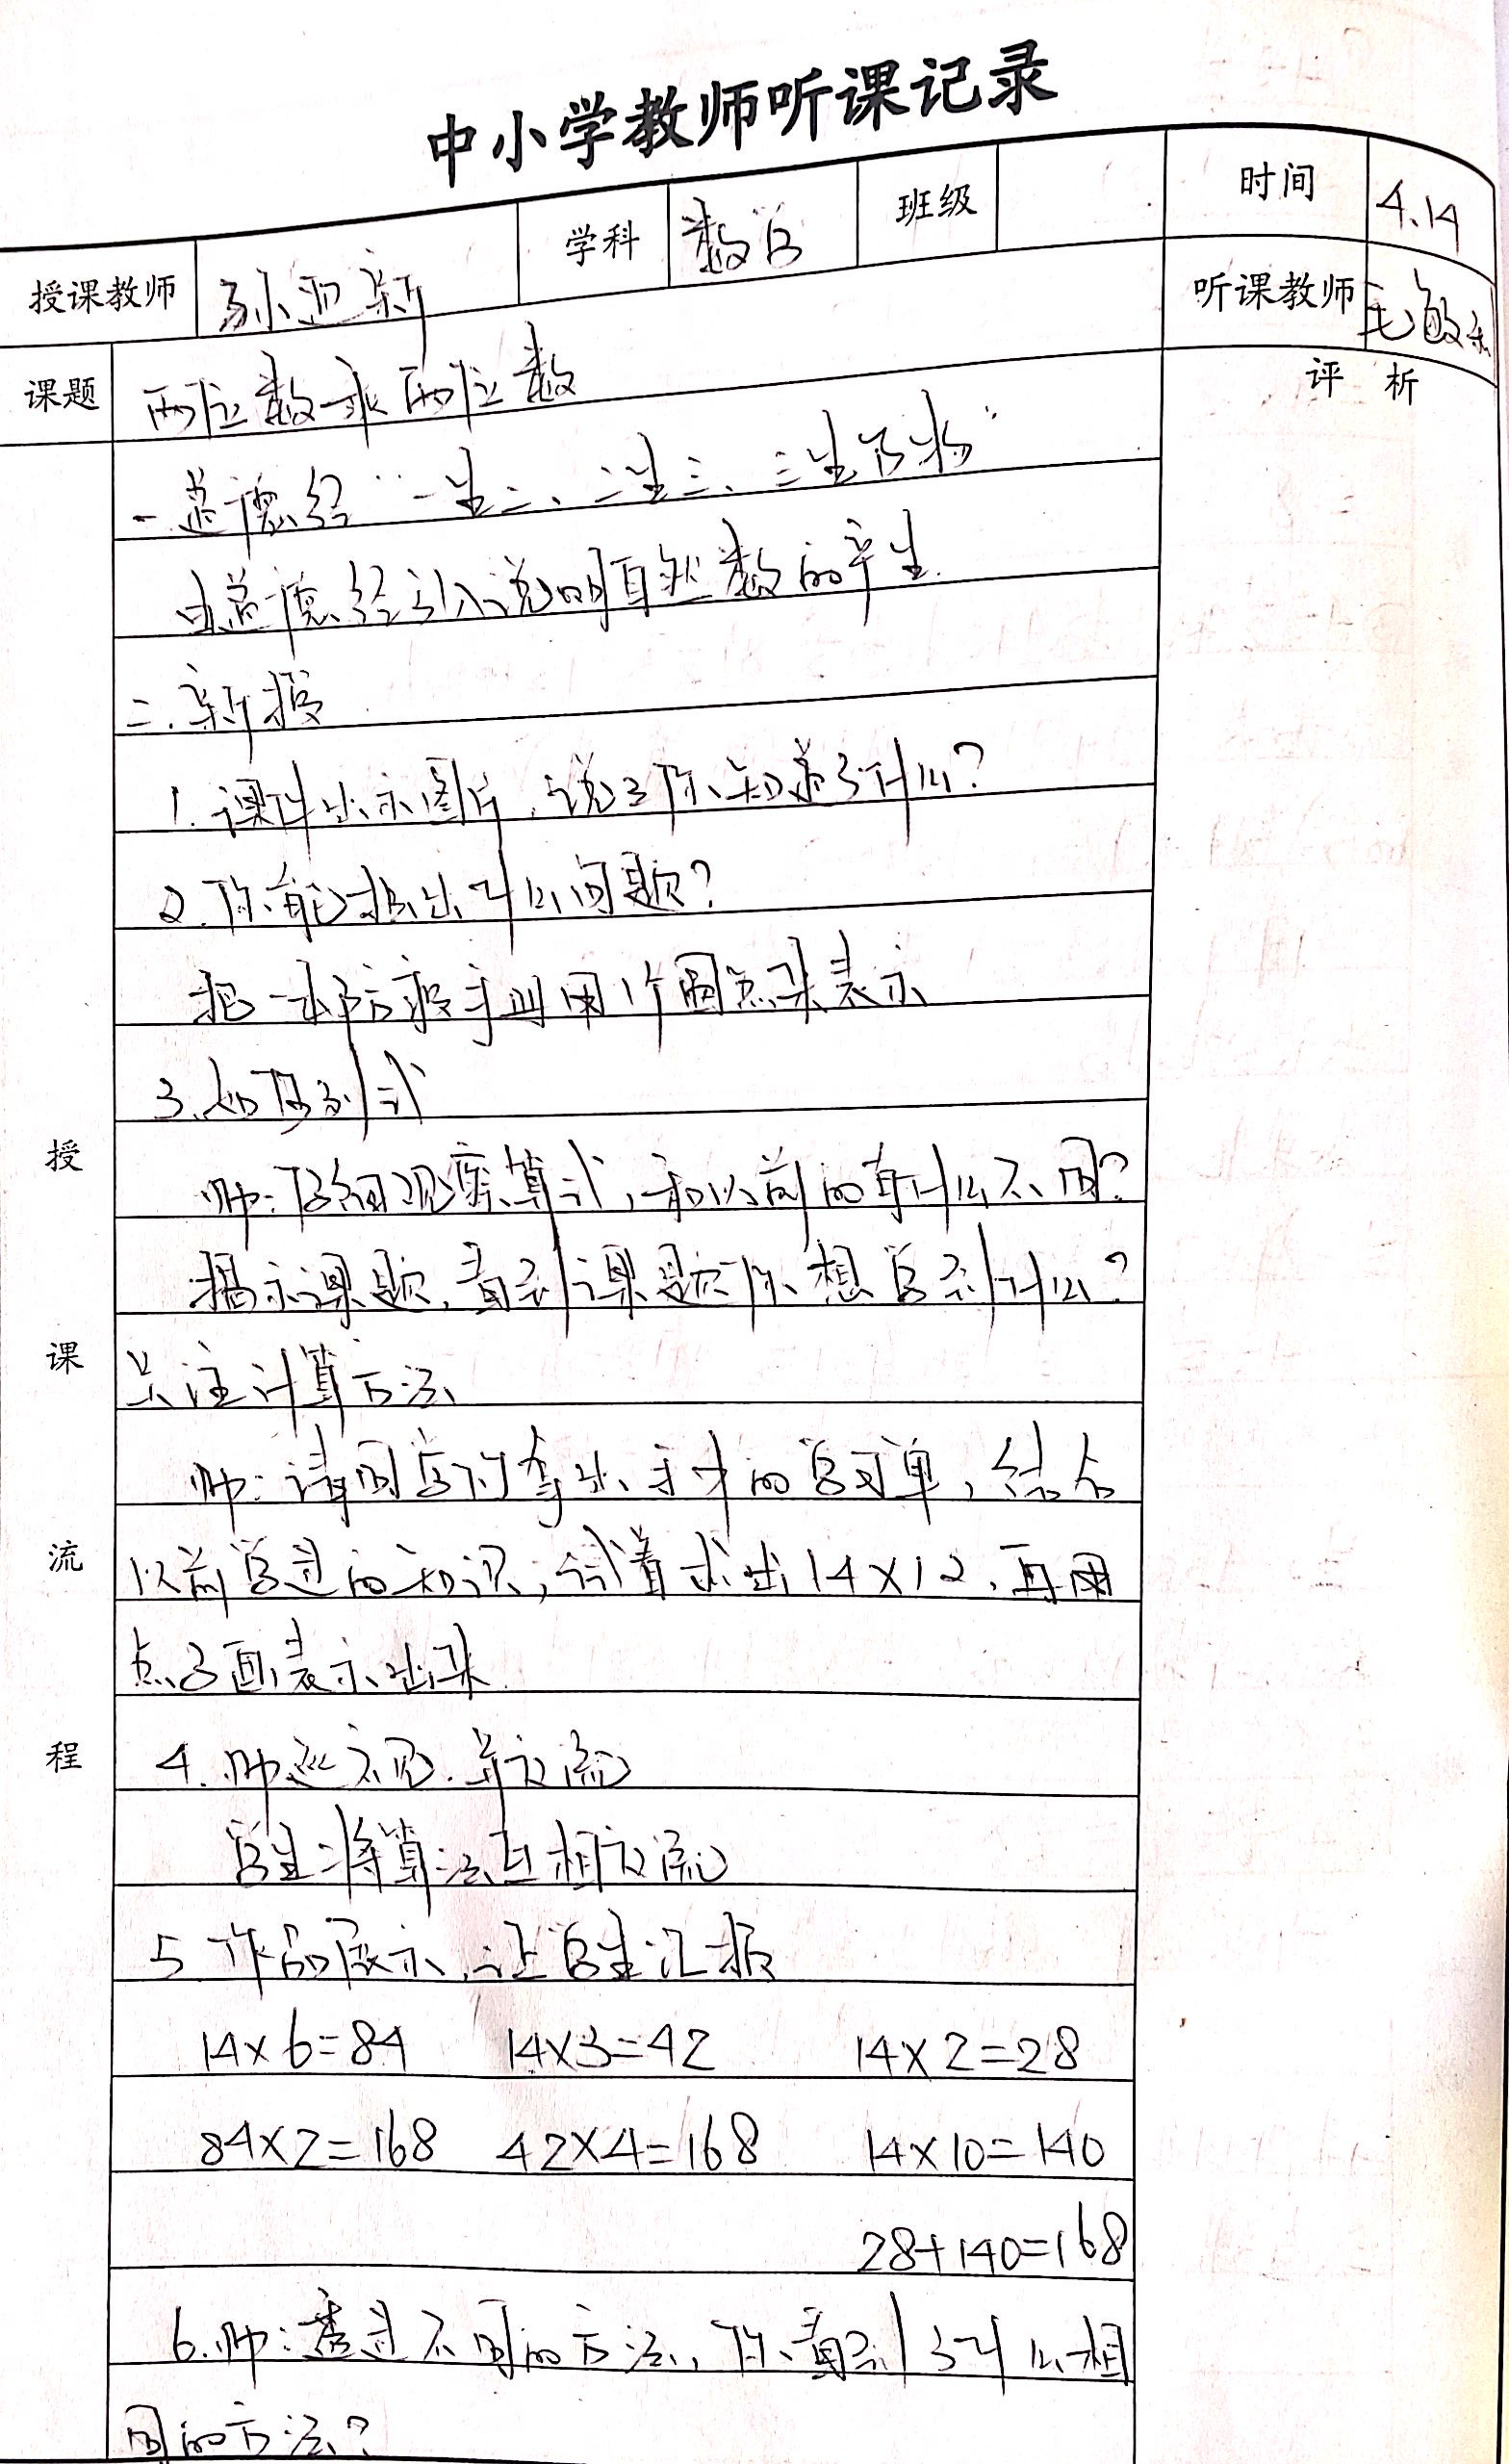 中小学教师听课记录
授课教师 孙亚新 学科 数学 班级 时间 4.14
听课教师 毛敏
课题 两位数乘两位数 评析
一.道德经“一生二、二生三、三生万物”
由道德经引入说明自然数的产生.
二.新授
1.课件出示图片,说说你知道了什么?
2.你能提出什么问题?
把一本书 用1个圆点来表示
3.如何列式
师:仔细观察算式,和以前的有什么不同?
揭示课题,看到课题你想学到什么?
关注计算方法
师:请同学们拿出手中的学习单,结合
以前学过的知识,试着求出14×12,再用
点子画表示出来.
4.师巡视.并交流
学生将算法互相交流
5 作品展示,让学生汇报
14×6=84 14×3=42 14×2=28
84×2=168 42×4=168 14×10=140
28+140=168
6.师:透过不同的方法,你看到了什么相
同的方法?
授课流程